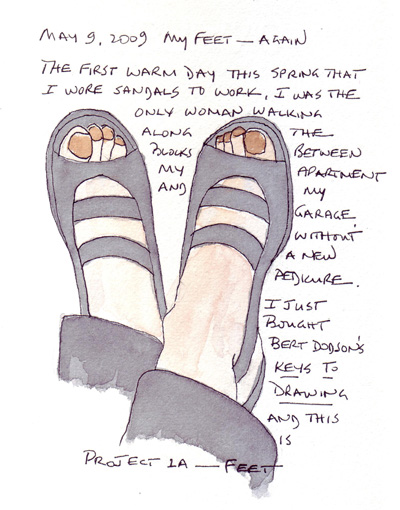 MAY 9, 2009 MY FEET — AGAIN
THE FIRST WARM DAY THIS SPRING THAT
I WORE SANDALS TO WORK, I WAS THE
ONLY WOMAN WALKING
ALONG THE
BLOCKS BETWEEN
MY APARTMENT
AND MY
GARAGE
WITHOUT
A NEW
PEDICURE.
I JUST
BOUGHT
BERT DODSON'S
KEYS TO
DRAWING
AND THIS
IS
PROJECT 1A — FEET